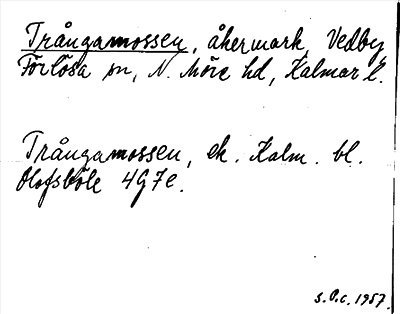 Trångamossen, åkermark, Vedby,
Förlösa sn, N. Möre hd, Kalmar l.
Trångamossen, ek. Kalm. bl.
Olofsböle 4G7e.
s.O.c. 1957.